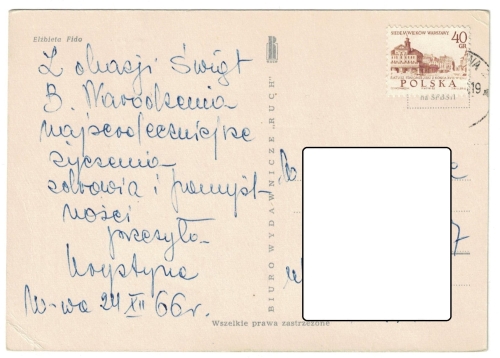 Elżbieta Fida
Z okazji Świąt
B. Narodzenia
najserdeczniejsze
życzenia
zdrowia i pomyśl-
ności
przesyła
Krystyna
W-wa 24 XII 66r.
BIURO WYDAWNICZE „RUCH”
SIEDEM WIEKÓW WARSZAWY
40
GR
POLSKA
Wszelkie prawa zastrzeżone